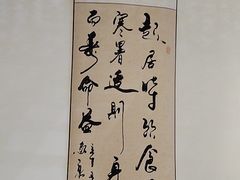 起居時飲食
寒暑適則身
而壽命益